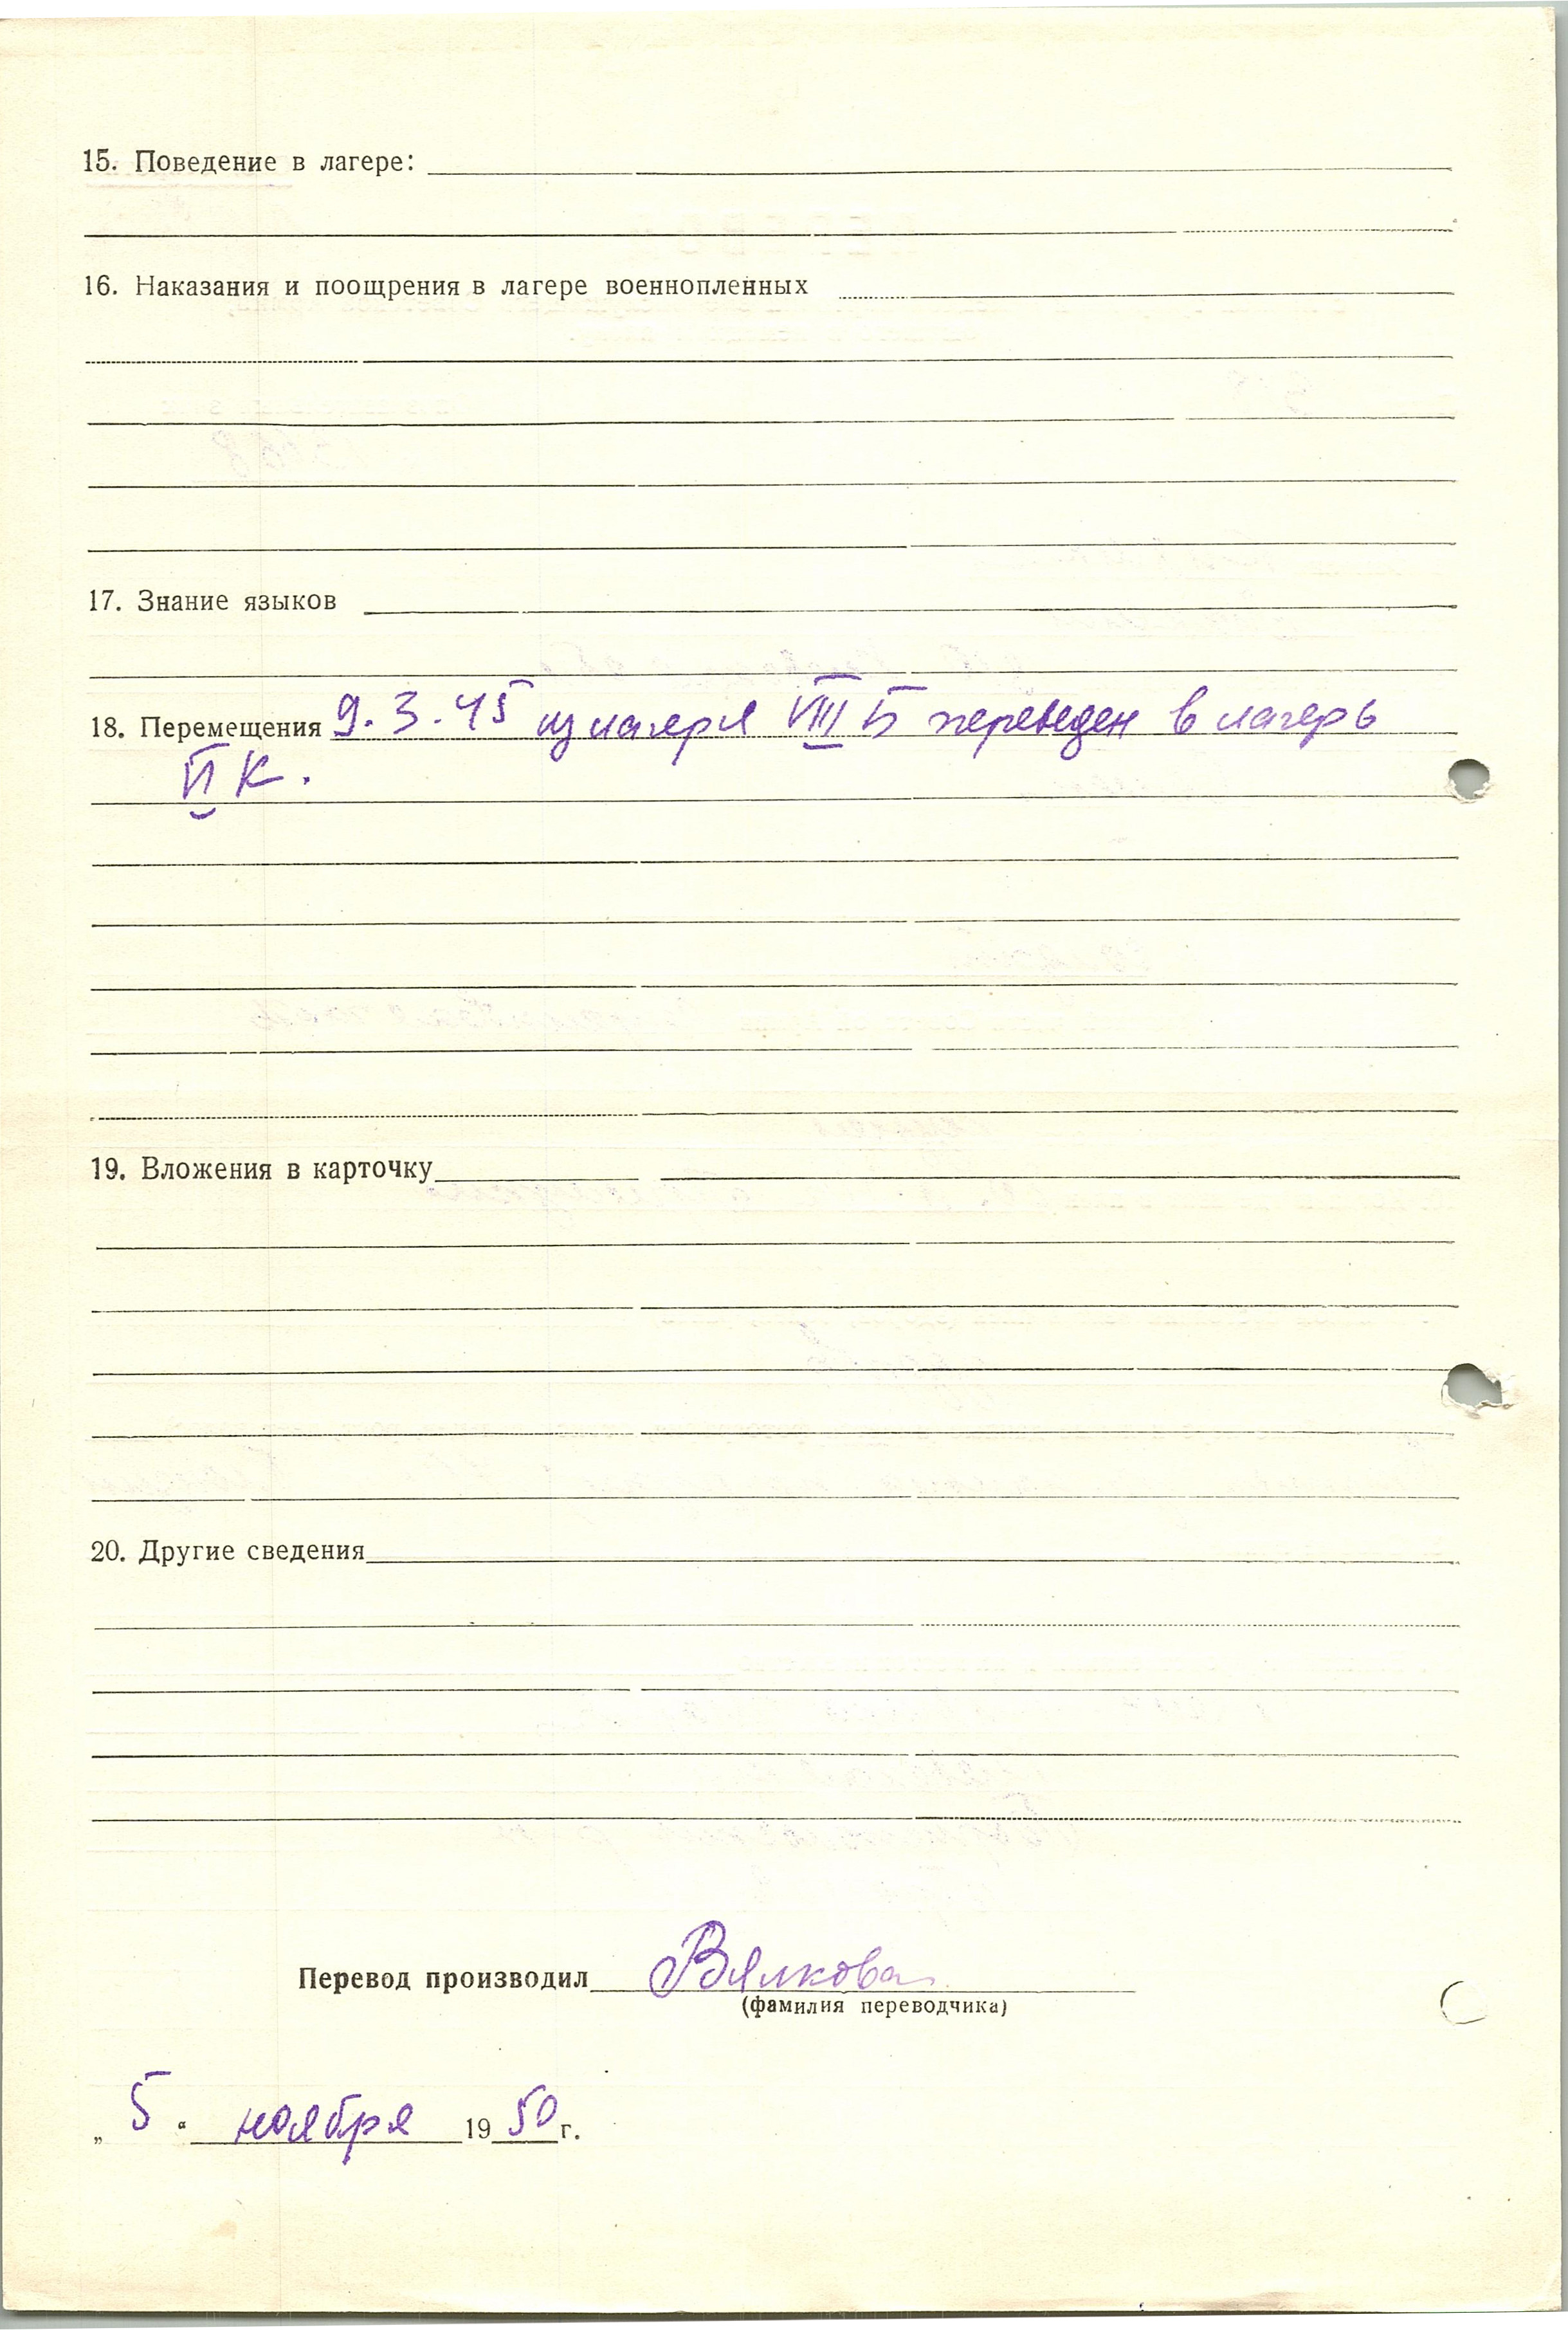 15. Поведение в лагере:
16. Наказания и поощрения в лагере военнопленных
17. Знание языков
18. Перемещения 9.3.45 из лагеря VIII Б переведен в лагерь
VI К.
19. Вложения в карточку
20. Другие сведения
Перевод производил Вялкова
(фамилия переводчика)
„ 5 “ ноября 19 50 г.